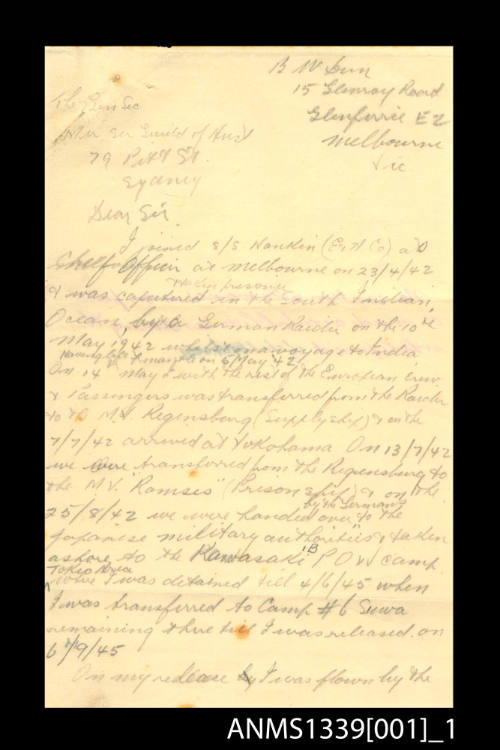 B W Dun
15 Glenroy Road
Glenferrie E2
Melbourne
Vic
The Gen Sec
Mer Ser Guild of Aust
79 Pitt St.
Sydney
Dear Sir
I joined S/S Nankin (E & A Co) as
Chief Officer at Melbourne on 23/4/42
& was captured taken prisoner in the South Indian
Ocean, by a German Raider on the 10th
May 1942 whilst on a voyage to India
having left Fremantle on 5 May '42
On 14th May I with the rest of the European Crew
& Passengers was transferred from the Raider
to the M.V. Regensburg (Supply ship) & on the
7/7/42 arrived at Yokohama On 13/7/42
we were transferred from the Regensburg to
the M.V. "Ramses" (Prison ship) & on the
by the Germans
25/8/42 we were handed over to the
Japanese military authorities & taken
ashore to the Kawasaki 1B P O W camp
Tokio Area
where I was detained till 4/6/45 when
I was transferred to Camp #6 Suwa
remaining there till I was released on
6/9/45
On my release I was flown by the
ANMS1339[001]_1